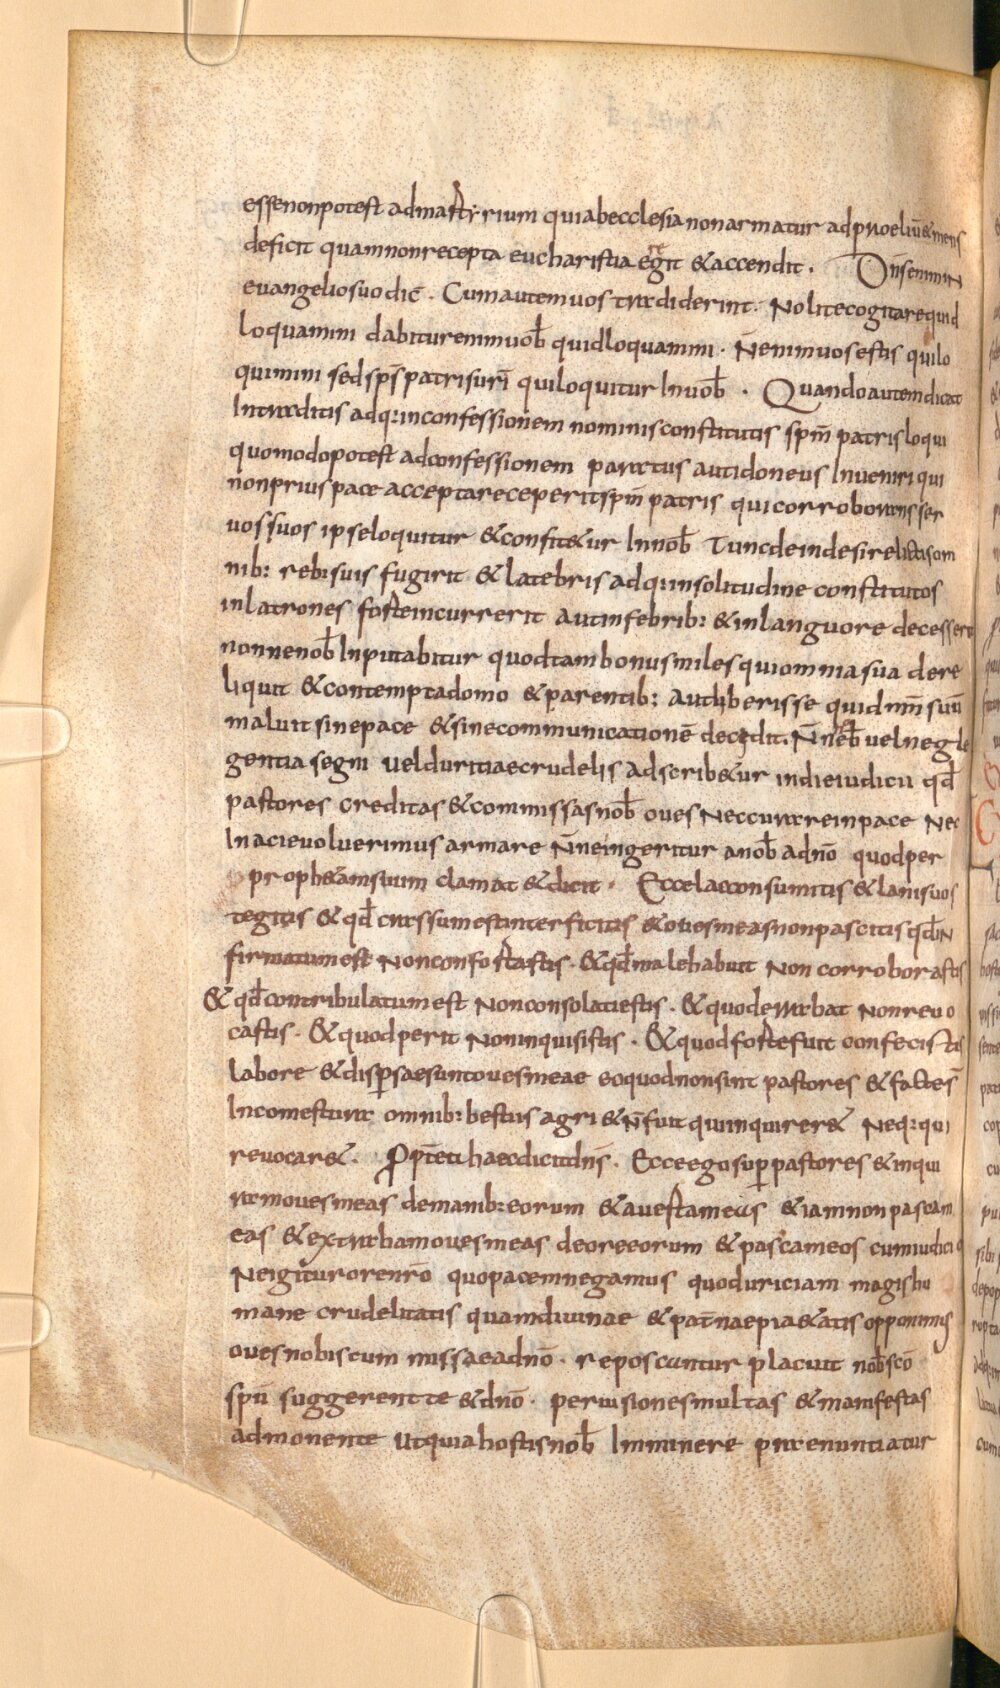 essenonpotest admartyrium quiabecclesianonarmatur adproeliū&mens
deficit quamnonrecepta eucharistia eregit &accendit. Dnsenimin
euangeliosuodic̄. Cumautemuos tradiderint. Nolitecogitarequid
loquamini dabiturenimuob̄ quidloquamini. N̄enimuosestis quilo
quimini sedsps̄patrisuri̅ quiloquitur Inuob̄. Quandoautemdicat
Intraditis adq:inconfessionem nominisconstitutis spm̄ patrisloqui
quomodopotest adconfessionem paratus autidoneus Inueniri qui
nonpriuspace acceptareceperitspm̄ patris quicorroboransser
uossuos ipseloquitur &confit&ur Innob̄ Tuncdeindesirelictisom
nib: rebisuis fugirit &latebris adq:insolitudine constitutos
inlatrones forteincurrerit autinfebrib: &inlanguore decesserit
nonnenob̄Inputabitur quodtambonusmiles quiomniasua dere
liquit &contemptadomo &parentib: autliberisse quidnīn suū
maluit sinepace &sinecommunicationē decedit. N̄neb̄uelnegle
gentia segni uelduritiaecrudelis adscrib&ur indieiudicii qd̄
pastores creditas &commissasnob̄ oues Neccurareinpace Nec
Inacieuoluerimus armare N̄neingeritur anob̄adnō quodper
proph&amsuum clamat &dicit. Eccelacconsumitis &lanisuos
tegitis &qd̄crassumestinterficitis &ouesmeasnonpascitis qd̄in
firmatumest Nonconfortastis. &qd̄malehabuit Non corroborastis
&qd̄contribulatumest Nonconsolatiestis. &quoderrabat Nonreuo
castis. &quodperit Noninquisistis. &quodfortefuit confecistis
labore &dispsaesuntouesmeae eoquodnonsint pastores &factes̄
Incomestura omnib:bestiis agri &n̄fuit quiinquirer& Neq:qui
reuocar&. Ppt̄eti haecdicitdn̄s. Ecceegosup̱pastores &inqui
ramouesmeas demanib:eorum &auertameos &iamnonpascam
eas &extrahamouesmeas deoreeorum &pascameos cumiudicio
Neigiturorenrō quopacemnegamus quoduriciam magishu
mane crudelitatis quamdiuinae &pat̄naepia&atis opponimus
ouesnobiscum missaeadnō. reposcantur placuit nob̄scō
spū suggerentte &dnō. peruisionesmultas &manifestas
admonente Utquiahostisnob̄ Imminere praenuntiatur